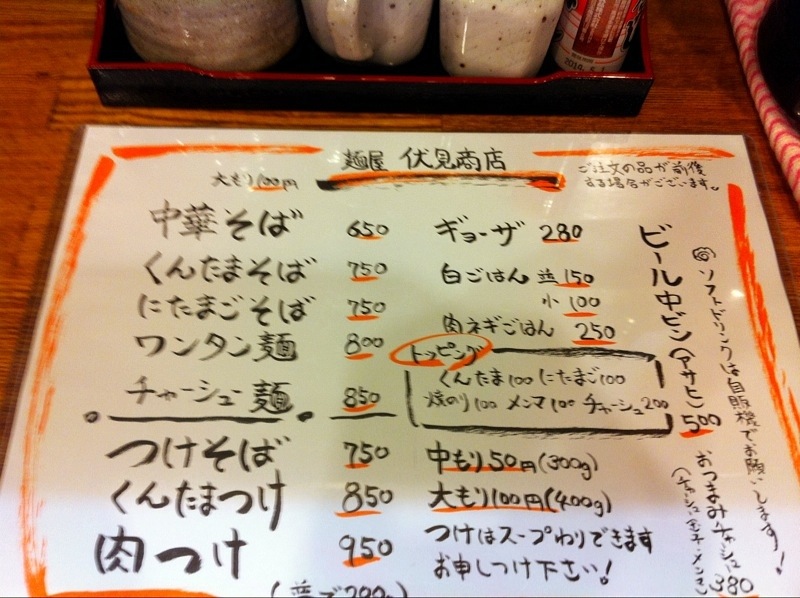 麺屋 伏見商店
大もり100円
ご注文の品が前後
する場合がございます。
中華そば 650
くんたまそば 750
にたまごそば 750
ワンタン麺 800
チャーシュー麺 850
つけそば 750
くんたまつけ 850
肉つけ 950
ギョーザ 280
白ごはん 並150
小100
肉ネギごはん 250
トッピング
くんたま100 にたまご100
焼のり100 メンマ100 チャーシュー200
中もり50円(300g)
大もり100円(400g)
つけはスープわりできます
お申しつけ下さい!
ビール中ビン(アサヒ) 500
ソフトドリンクは自販機でお願いします!
おつまみチャーシュー 380